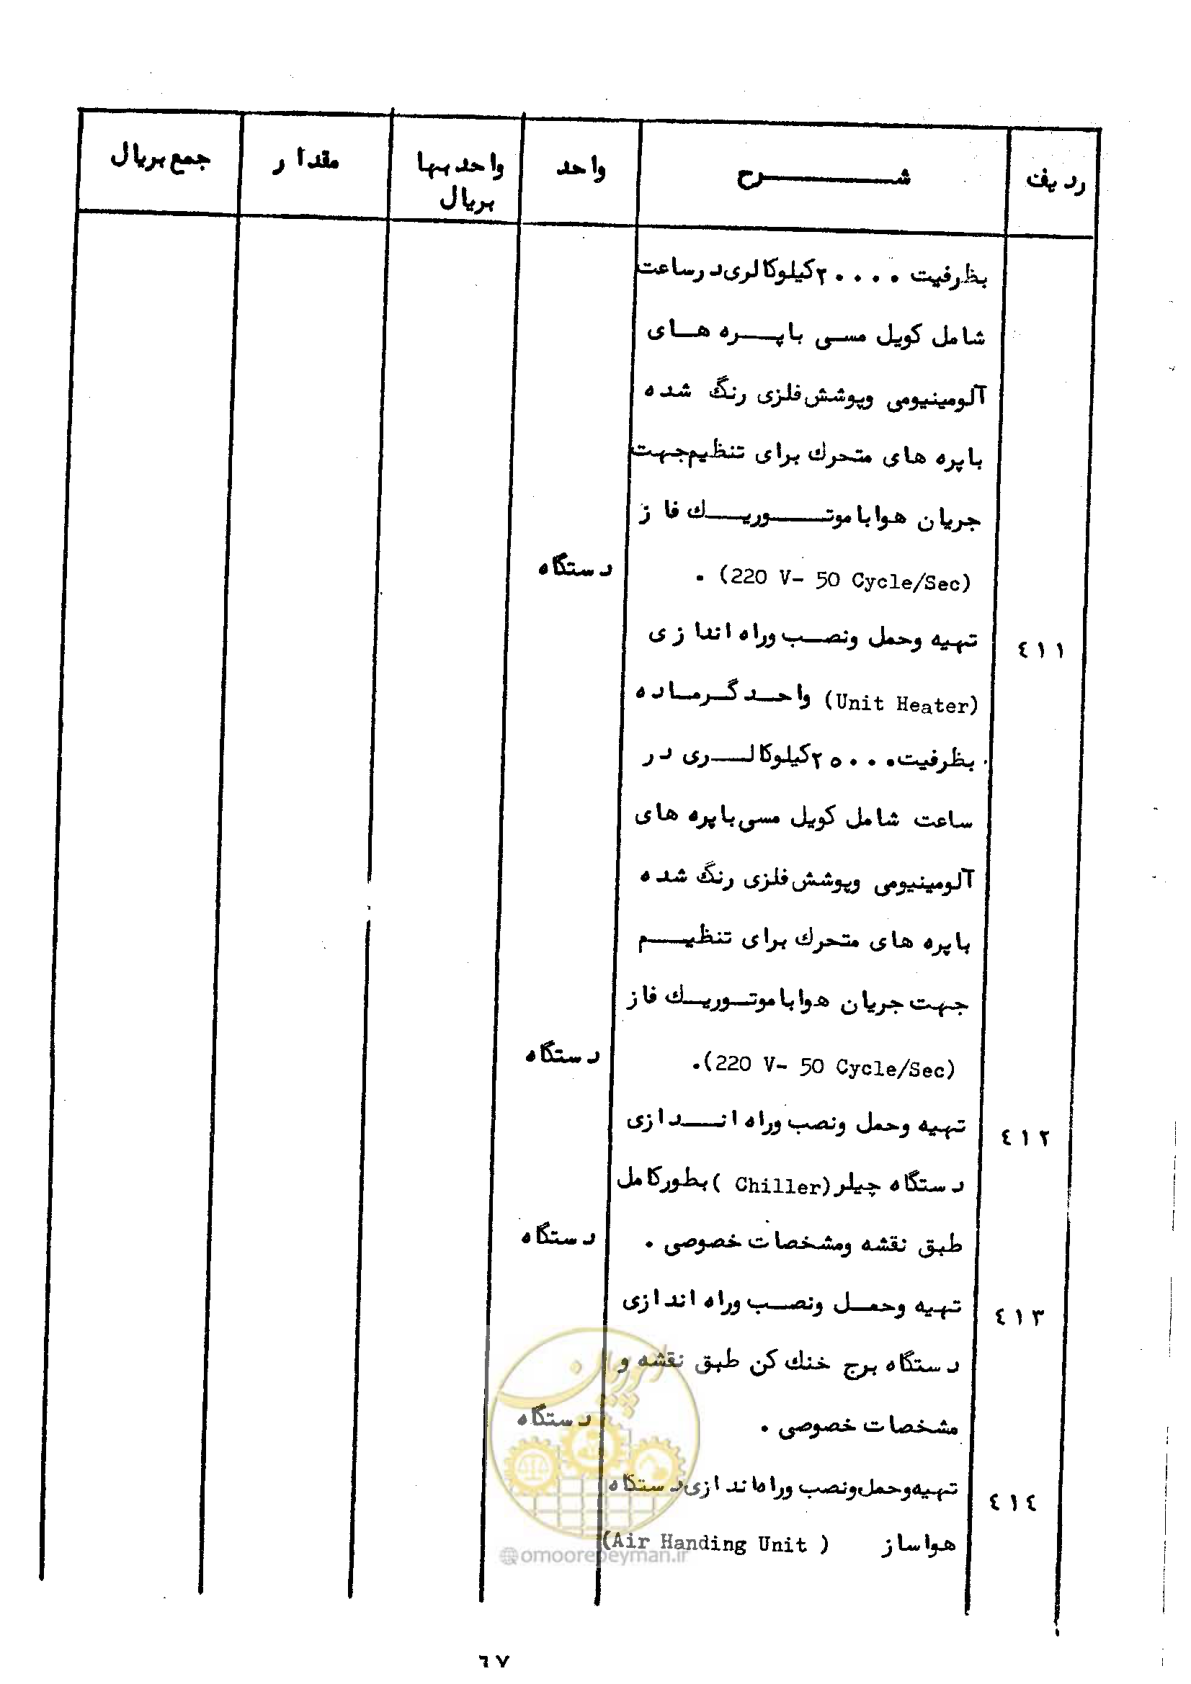 ردیف شرح واحد واحد بها مقدار جمع بریال
بریال
بظرفیت ۲۰۰۰۰ کیلوکالری در ساعت
شامل کویل مسی با پره های
آلومینیومی وپوشش فلزی رنگ شده
با پره های متحرك برای تنظیم جهت
جریان هوا با موتور یك فاز
(220 V- 50 Cycle/Sec) . دستگاه
٤١١ تهیه وحمل ونصب وراه اندازی
واحد گرماده (Unit Heater)
بظرفیت ۲۵۰۰۰ کیلوکالری در
ساعت شامل کویل مسی با پره های
آلومینیومی وپوشش فلزی رنگ شده
با پره های متحرك برای تنظیم
جهت جریان هوا با موتور یك فاز
(220 V- 50 Cycle/Sec). دستگاه
٤١٢ تهیه وحمل ونصب وراه اندازی
دستگاه چیلر (Chiller) بطور کامل
طبق نقشه ومشخصات خصوصی . دستگاه
٤١٣ تهیه وحمل ونصب وراه اندازی
دستگاه برج خنك کن طبق نقشه و
مشخصات خصوصی . دستگاه
٤١٤ تهیه وحمل ونصب وراه اندازی دستگاه
هواساز (Air Handing Unit )
امور پیمان
@omoorepeyman.ir
٦٧